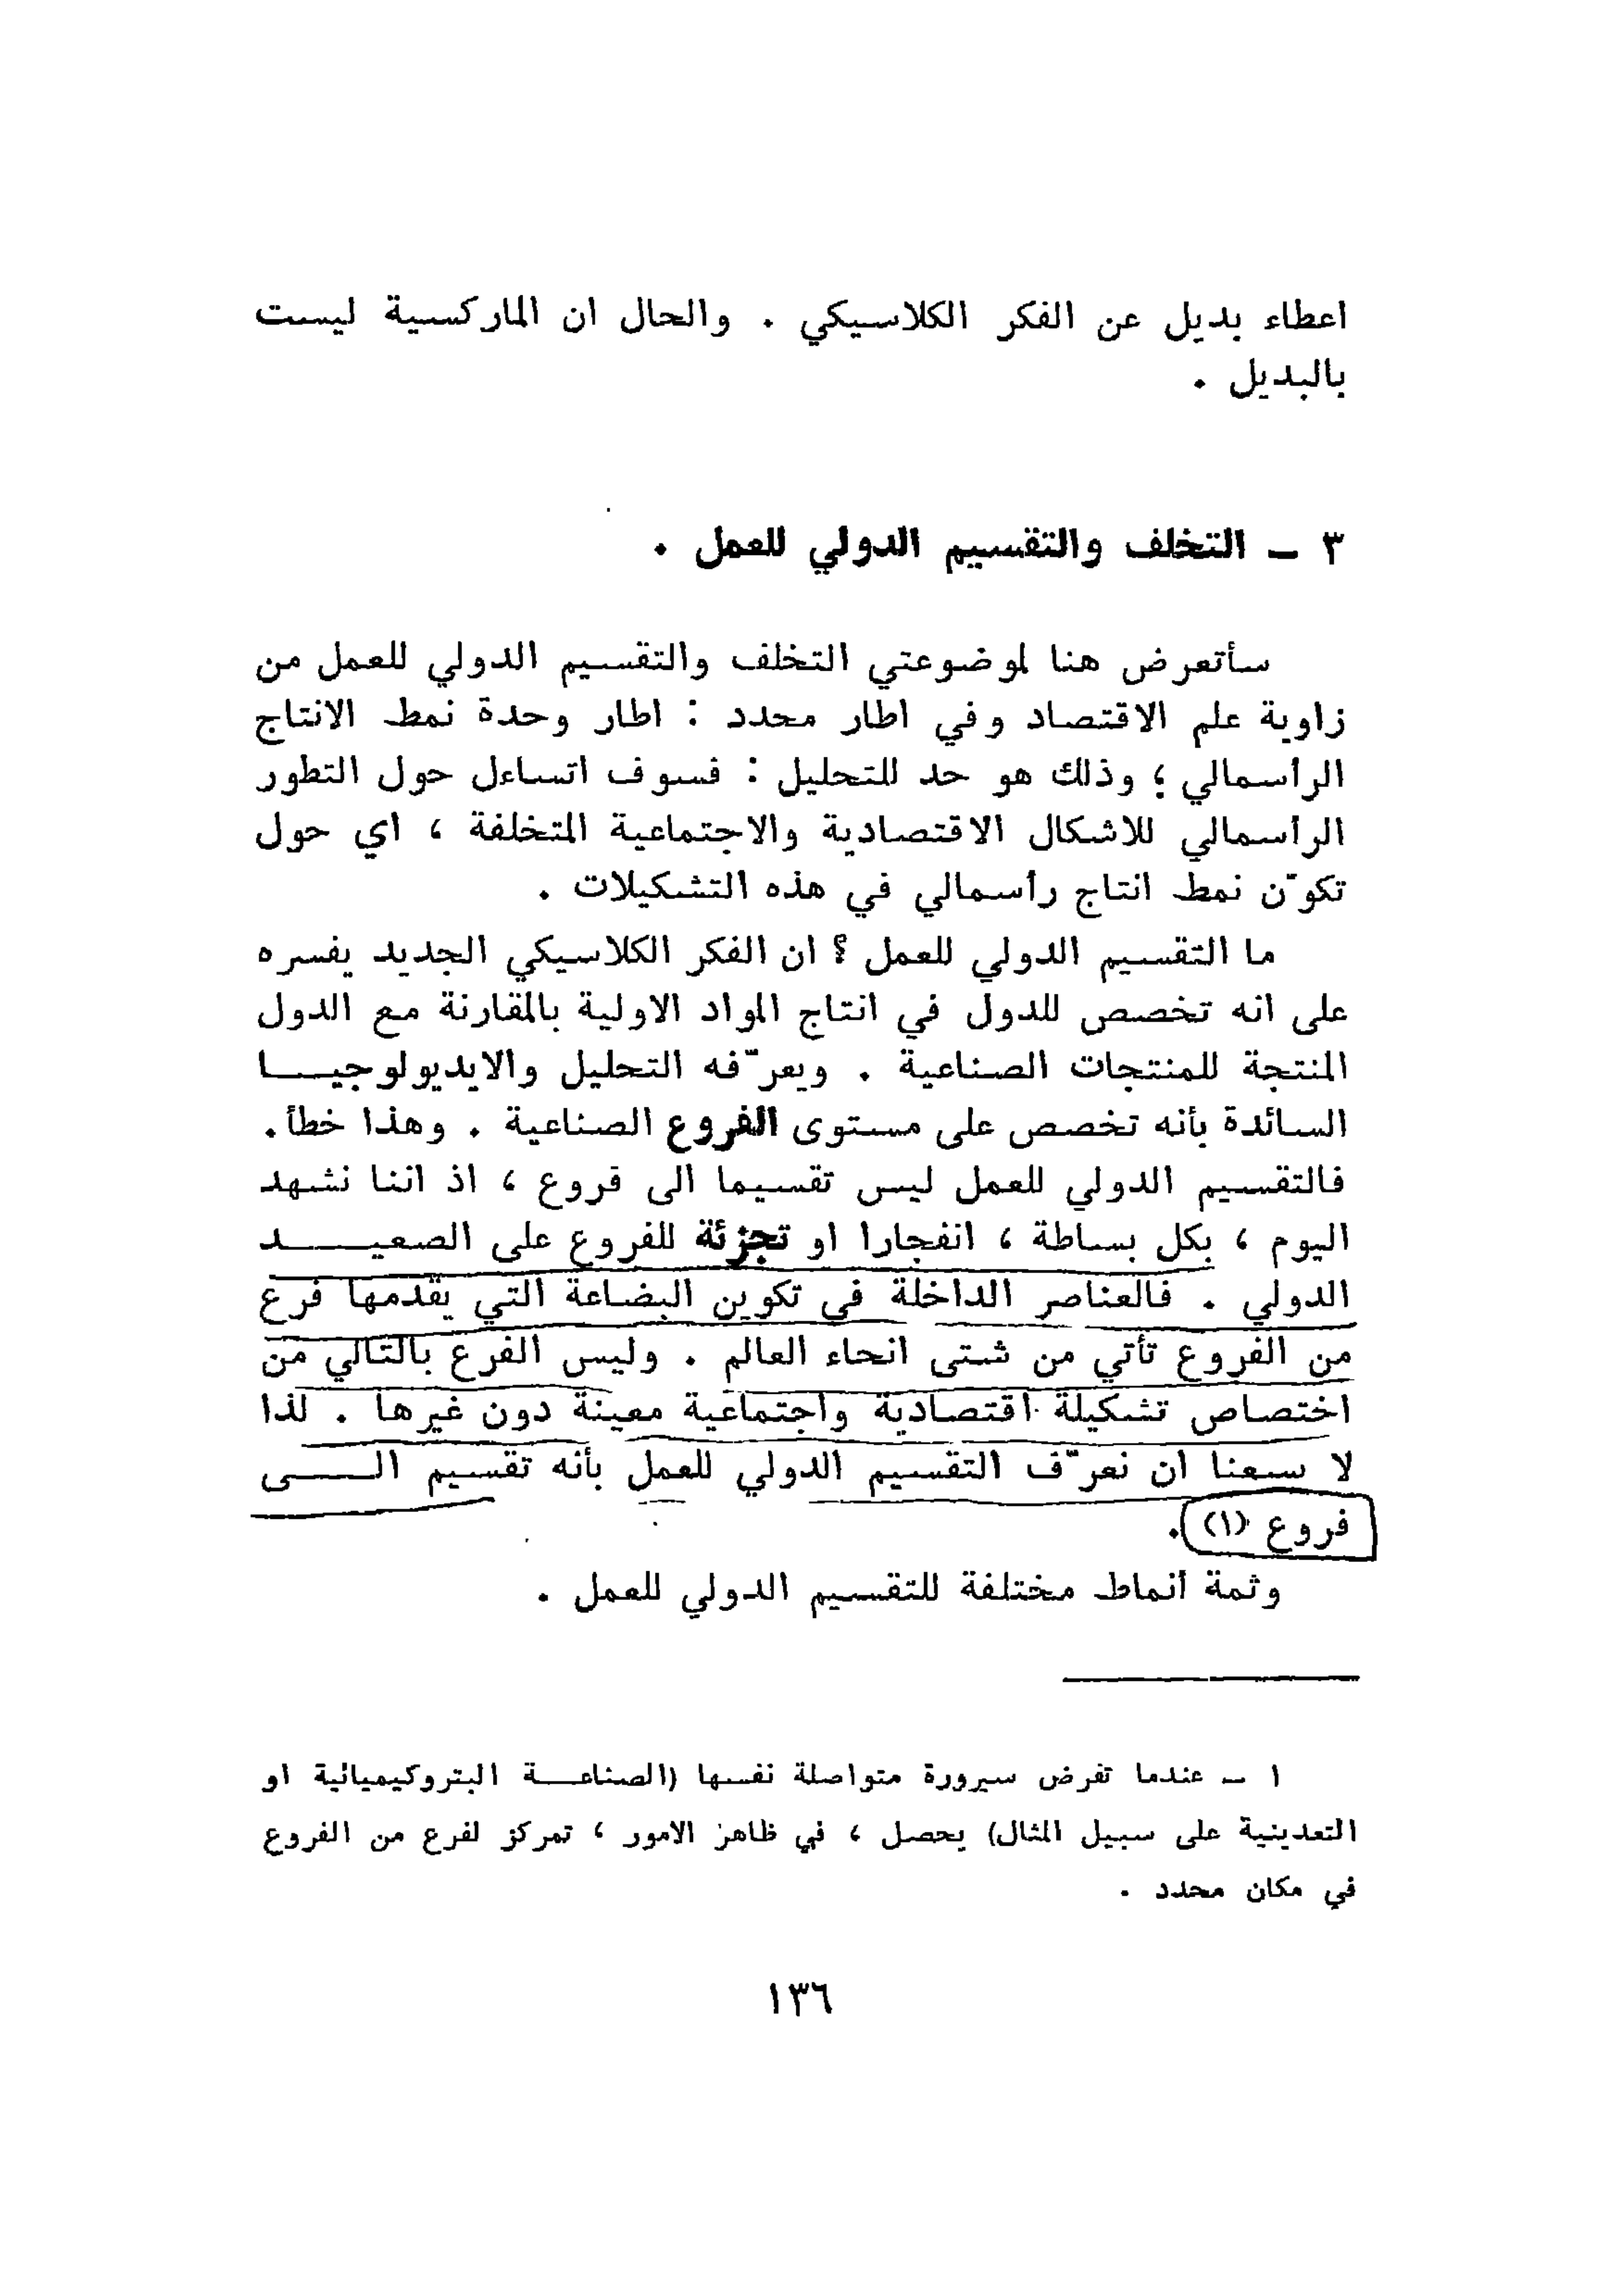 اعطاء بديل عن الفكر الكلاسيكي . والحال ان الماركسية ليست
بالبديل .
٣ – التخلف والتقسيم الدولي للعمل .
سأتعرض هنا لموضوعتي التخلف والتقسيم الدولي للعمل من
زاوية علم الاقتصاد وفي اطار محدد : اطار وحدة نمط الانتاج
الرأسمالي ؛ وذلك هو حد للتحليل : فسوف اتساءل حول التطور
الرأسمالي للاشكال الاقتصادية والاجتماعية المتخلفة ، اي حول
تكوّن نمط انتاج رأسمالي في هذه التشكيلات .
ما التقسيم الدولي للعمل ؟ ان الفكر الكلاسيكي الجديد يفسره
على انه تخصص للدول في انتاج المواد الاولية بالمقارنة مع الدول
المنتجة للمنتجات الصناعية . ويعرّفه التحليل والايديولوجيـــا
السائدة بأنه تخصص على مستوى الفروع الصناعية . وهذا خطأ .
فالتقسيم الدولي للعمل ليس تقسيما الى فروع ، اذ اننا نشهد
اليوم ، بكل بساطة ، انفجارا او تجزئة للفروع على الصعيـــد
الدولي . فالعناصر الداخلة في تكوين البضاعة التي يقدمها فرع
من الفروع تأتي من شتى انحاء العالم . وليس الفرع بالتالي من
اختصاص تشكيلة اقتصادية واجتماعية معينة دون غيرها . لذا
لا سعنا ان نعرّف التقسيم الدولي للعمل بأنه تقسيم الـــى
فروع (١) .
وثمة أنماط مختلفة للتقسيم الدولي للعمل .
١ – عندما تفرض سيرورة متواصلة نفسها (الصناعـــة البتروكيميائية او
التعدينية على سبيل المثال) يحصل ، في ظاهر الامور ، تمركز لفرع من الفروع
في مكان محدد .
١٣٦